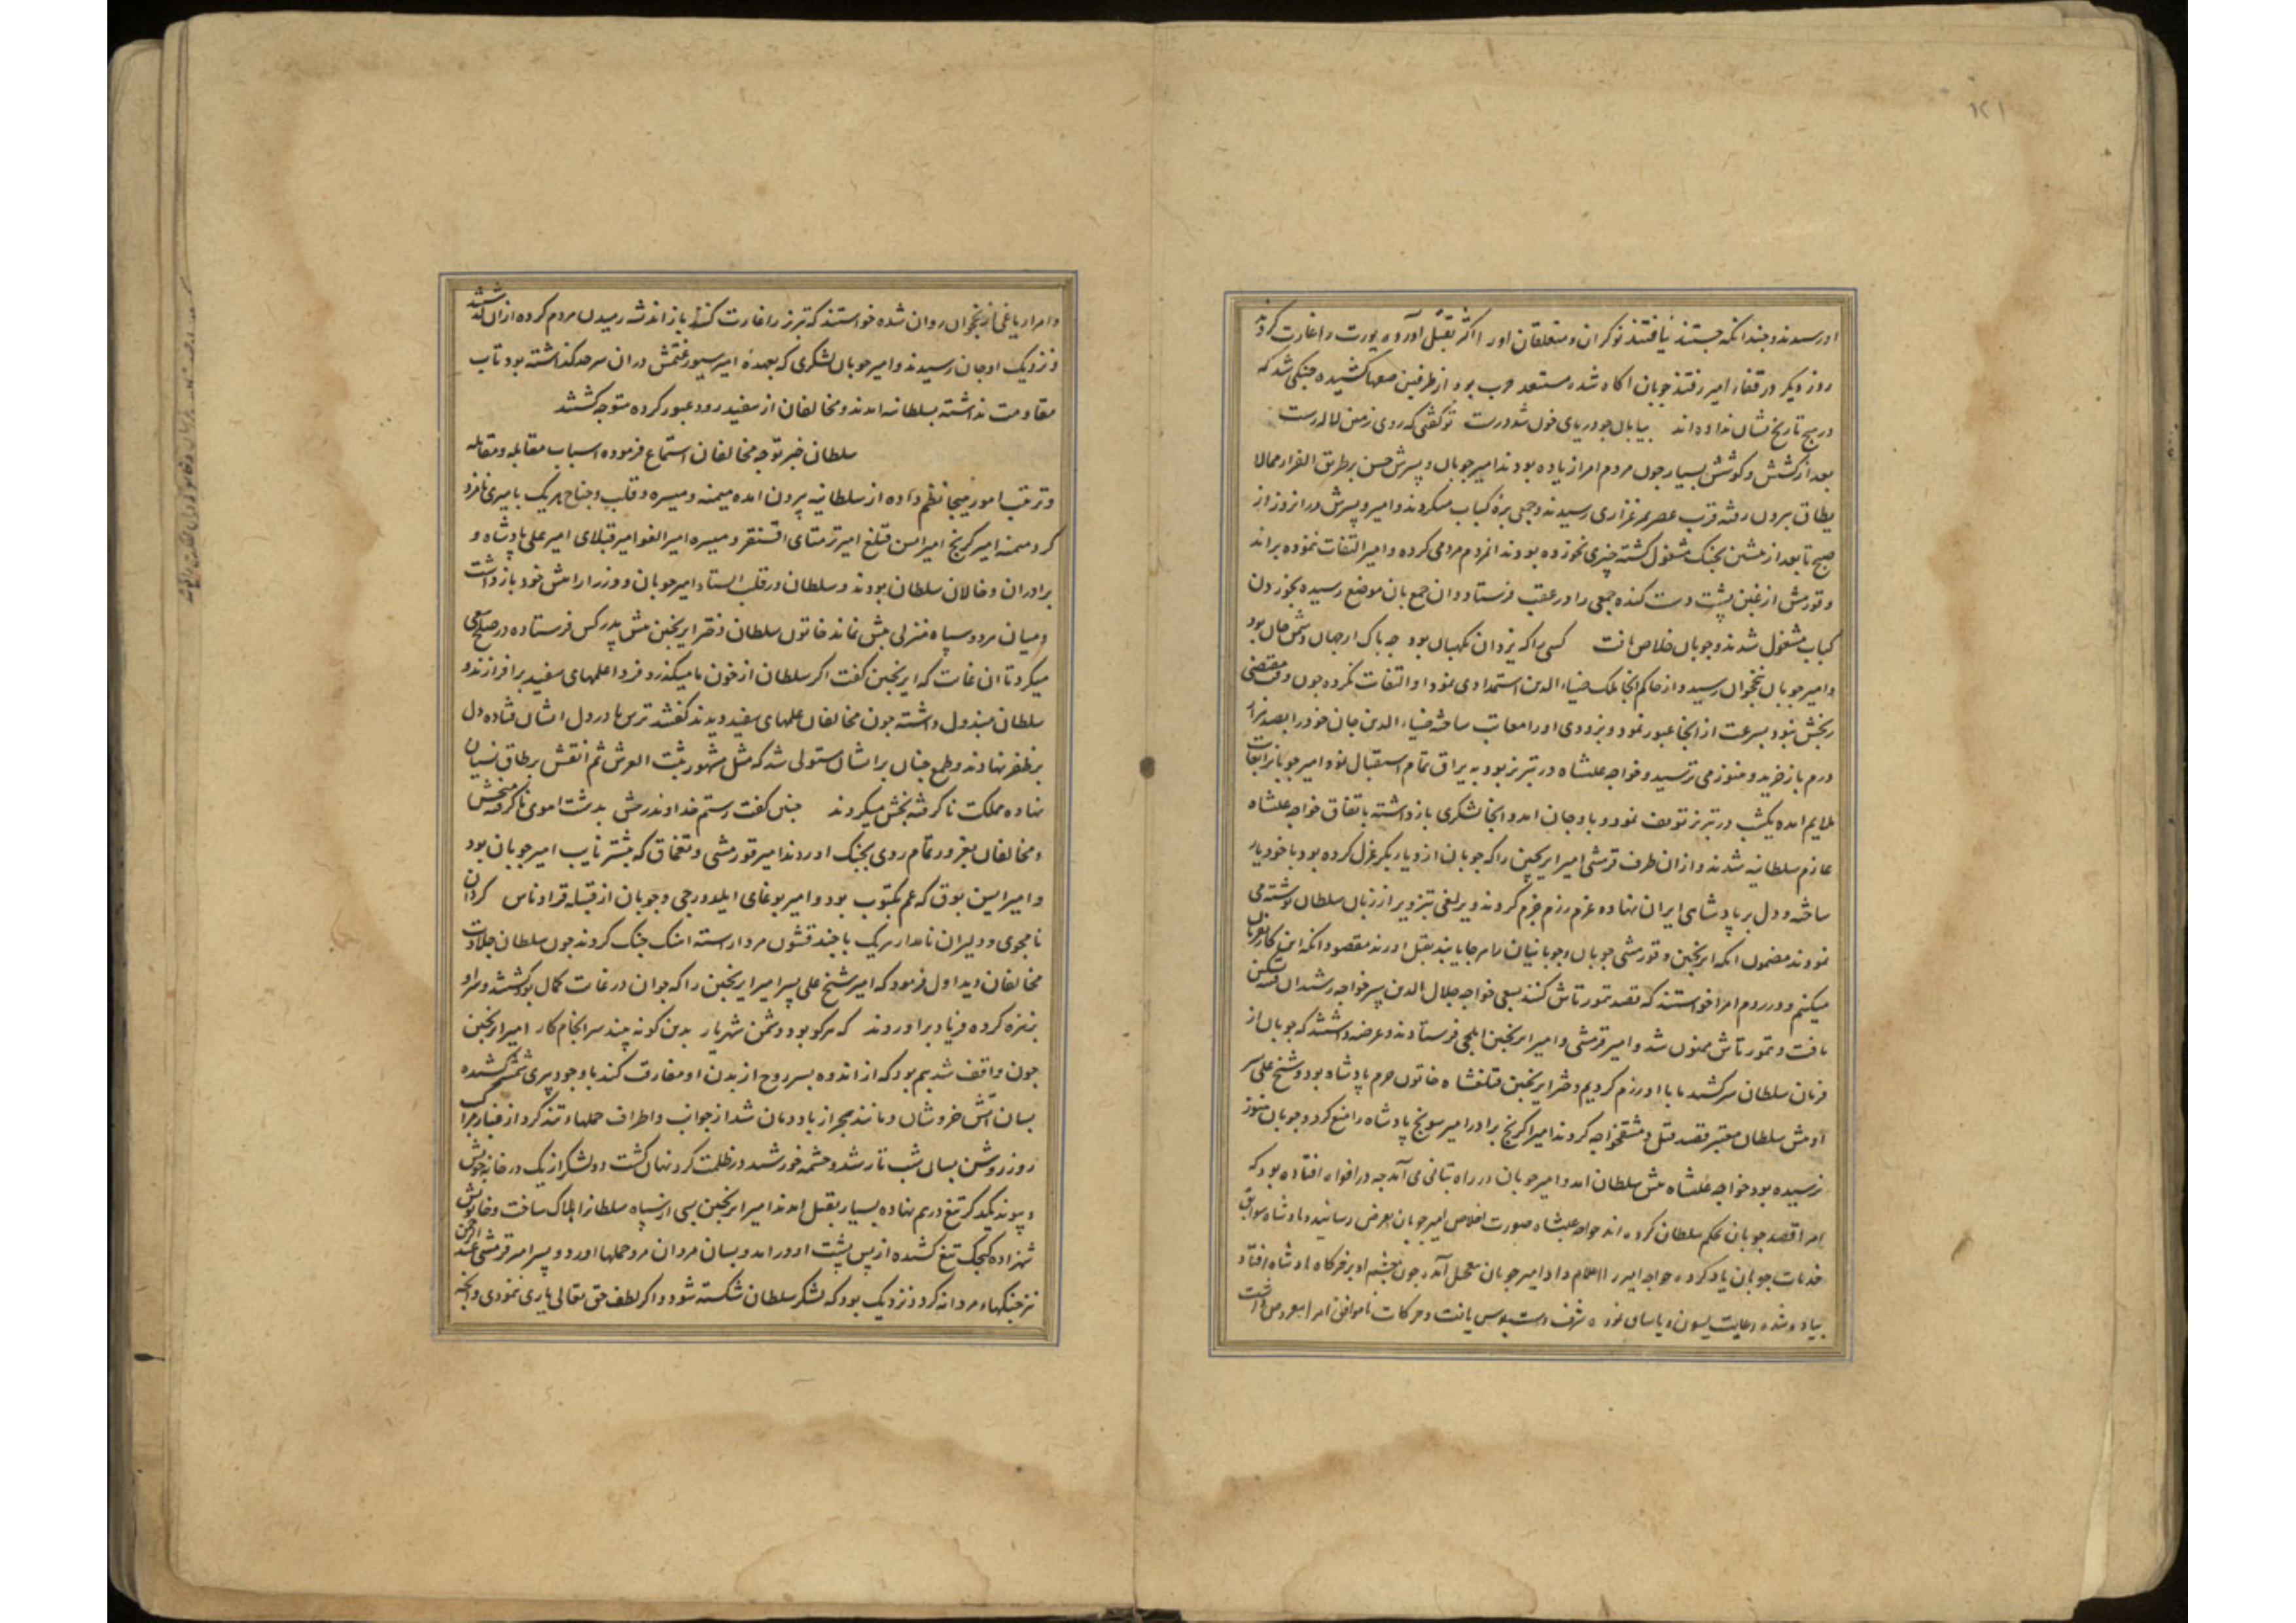 ۱۲۱
او رسیدند و چندانکه جستند نیافتند نوکران و متعلقان او را اکثر بقتل آورده یورت را غارت کردند
روز دیگر در قفاء امیر رفتند جوبان اکاه شده مستعد حرب بود از طرفین صفها کشیده جنکی شد که
در هیچ تاریخ نشان نداده اند بیابان جو دریای خون شد درست تو کفتی که روی زمین لاله رست
بعد از کشش و کوشش بسیار جون مردم امرا زیاده بودند امیر جوبان و پسرش حسن بر طریق الفرار مما لا
یطاق بیرون رفته قریب عصر بمرغزاری رسیدند و جمعی بره کباب میکردند و امیر و پسرش در ان روز از
صبح تا بعد از پیشین بجنک مشغول کشته چیزی نخورده بودند ان مردم مردمی کرده و امیر التفات نموده براند
و قورمشی از غبن پشت دست کنده جمعی را در عقب فرستاد و ان جمع بان موضع رسیده بخوردن
کباب مشغول شدند و جوبان خلاص یافت کسی را که یزدان نکهبان بود چه باک ار جهان دشمن جان بود
و امیر جوبان بنخجوان رسید و از حاکم انجا ملک ضیاء الدین استمدادی نمود او التفات نکرد و جون وقت مقتضی
رنجش نبود بسرعت از انجا عبور نمود و بزودی او را معاتب ساخته ضیاء الدین جان خود را بصد هزار
درم باز خرید و هنوز می ترسید و خواجه علیشاه در تبریز بود به یراق تمام استقبال نمود امیر جوبانرا بغایت
ملایم امده یکشب در تبریز توقف نمود و باوجان امد و انجا لشکری بازداشته باتفاق خواجه علیشاه
عازم سلطانیه شدند و از ان طرف قرمشی امیر ایرنجین را که جوبان از دیار بکر عزل کرده بود با خود یار
ساخته و دل بر پادشاهی ایران نهاده عزم رزم جزم کردند و یرلغی بتزویر از زبان سلطان نوشته می
نمودند مضمون انکه ایرنجین و قورمشی جوبان و جوبانیان را هر جا یابند بقتل اورند مقصود انکه این کار بفرمان
میکنیم و در روم امرا خواستند که قصد تمورتاش کنند بسعی خواجه جلال الدین پسر خواجه رشید ان فتنه تسکین
یافت و تمورتاش ممنون شد و امیر قرمشی و امیر ایرنجین ایلچی فرستادند و عرضه داشتند که جوبان از
فرمان سلطان سر کشید ما با او رزم کردیم و دختر ایرنجین قتلغشاه خاتون حرم پادشاه بود و شیخ علی پسر
او پیش سلطان معتبر قصد قتل دمشقخواجه کردند امیر اکرنج برادر امیر سونج پادشاه را منع کرد و جوبان هنوز
نرسیده بود خواجه علیشاه پیش سلطان امد و امیر جوبان در راه بتانی می آمد چه در افواه افتاده بود که
امرا قصد جوبان بحکم سلطان کرده اند خواجه علیشاه صورت اخلاص امیر جوبان بعرض رسانید و پادشاه سوابق
خدمات جوبان یاد کرده خواجه امیر را اعلام داد امیر جوبان بتعجیل آمد و جون چشم او بر خرکاه پادشاه افتاد
پیاده شده رعایت یسون و یاسای نموده شرف دست بوس یافت و حرکات ناموافق امرا معروض داشت
و امراء یاغی از نخجوان روان شده خواستند که تبریز را غارت کنند باز اندیشه رمیدن مردم کرده از ان کذشتند
و نزدیک اوجان رسیدند و امیر جوبان لشکری که بعهده امیر سیورغتمش در ان سرحد کذاشته بود تاب
مقاومت نداشته بسلطانیه امدند و مخالفان از سفید رود عبور کرده متوجه کشتند
سلطان خبر توجه مخالفان استماع فرموده اسباب مقابله و مقاتله
و ترتیب امور هیجا نظم داده از سلطانیه بیرون امده میمنه و میسره و قلب و جناح هر یک بامیری نامزد
کرد میمنه امیر کرنج امیر ایسن قتلغ امیر ترمتای اقسنقر و میسره امیر الغو امیر قبلای امیر علی پادشاه و
برادران و خالان سلطان بودند و سلطان در قلب ایستاد امیر جوبان و وزرا را پیش خود بازداشت
و میان هر دو سپاه منزلی بیش نماند خاتون سلطان دختر ایرنجین پیش پدر کس فرستاده در صلح سعی
میکرد تا ان غایت که ایرنجین کفت اکر سلطان از خون ما میکذرد فردا علمهای سفید برافرازند و
سلطان مبذول داشته جون مخالفان علمهای سفید دیدند کفتند ترس ما در دل ایشان فتاده دل
بر ظفر نهادند و طمع جنان بر ایشان مستولی شد که مثل مشهور ثبت العرش ثم انقش بر طاق نسیان
نهاده مملکت ناکرفته بخش میکردند چنین کفت رستم خداوند رخش بدشت اموی ناکرفته مبخش
و مخالفان بغرور تمام روی بجنک اوردند امیر قورمشی و تغماق که پیشتر نایب امیر جوبان بود
و امیر ایسن بوق که عم بکتوب بود و امیر بوغای ایلدورجی و جوبان از قبیله قراوناس کردان
نامجوی و دلیران نامدار هر یک با چند قشون مرد اراسته اهنک جنک کردند جون سلطان جلادت
مخالفان دید اول فرمود که امیر شیخ علی پسر امیر ایرنجین را که جوان در غایت کمال بود کشتند و سر او
بر نیزه کرده فریاد براوردند که هر کو بود دشمن شهریار بدین کونه بیند سرانجام کار امیر ایرنجین
جون واقف شد بیم بود که از اندوه پسر روح از بدن او مفارقت کند با وجود پیری شمشیر کشیده
بسان آتش خروشان و مانند بحر از باد دمان شد از جوانب و اطراف حملهاء تند کرد از غبار معرکه
روز روشن بسان شب تار شد و چشمه خورشید در ظلمت کرد نهان کشت دو لشکر از یک در خانه خویش
و پیوند یکدکر تیغ در هم نهاده بسیار بقتل امدند امیر ایرنجین بسی از سپاه سلطانرا هلاک ساخت و خاتونش
شهزاده کنجک تیغ کشیده از پس پشت او در امد و بسان مردان مرد حملها اورد و پسر امیر قرمشی عبد الرحمن
نیز جنکهاء مردانه کرد و نزدیک بود که لشکر سلطان شکسته شود و اکر لطف حق تعالی یاری ننمودی